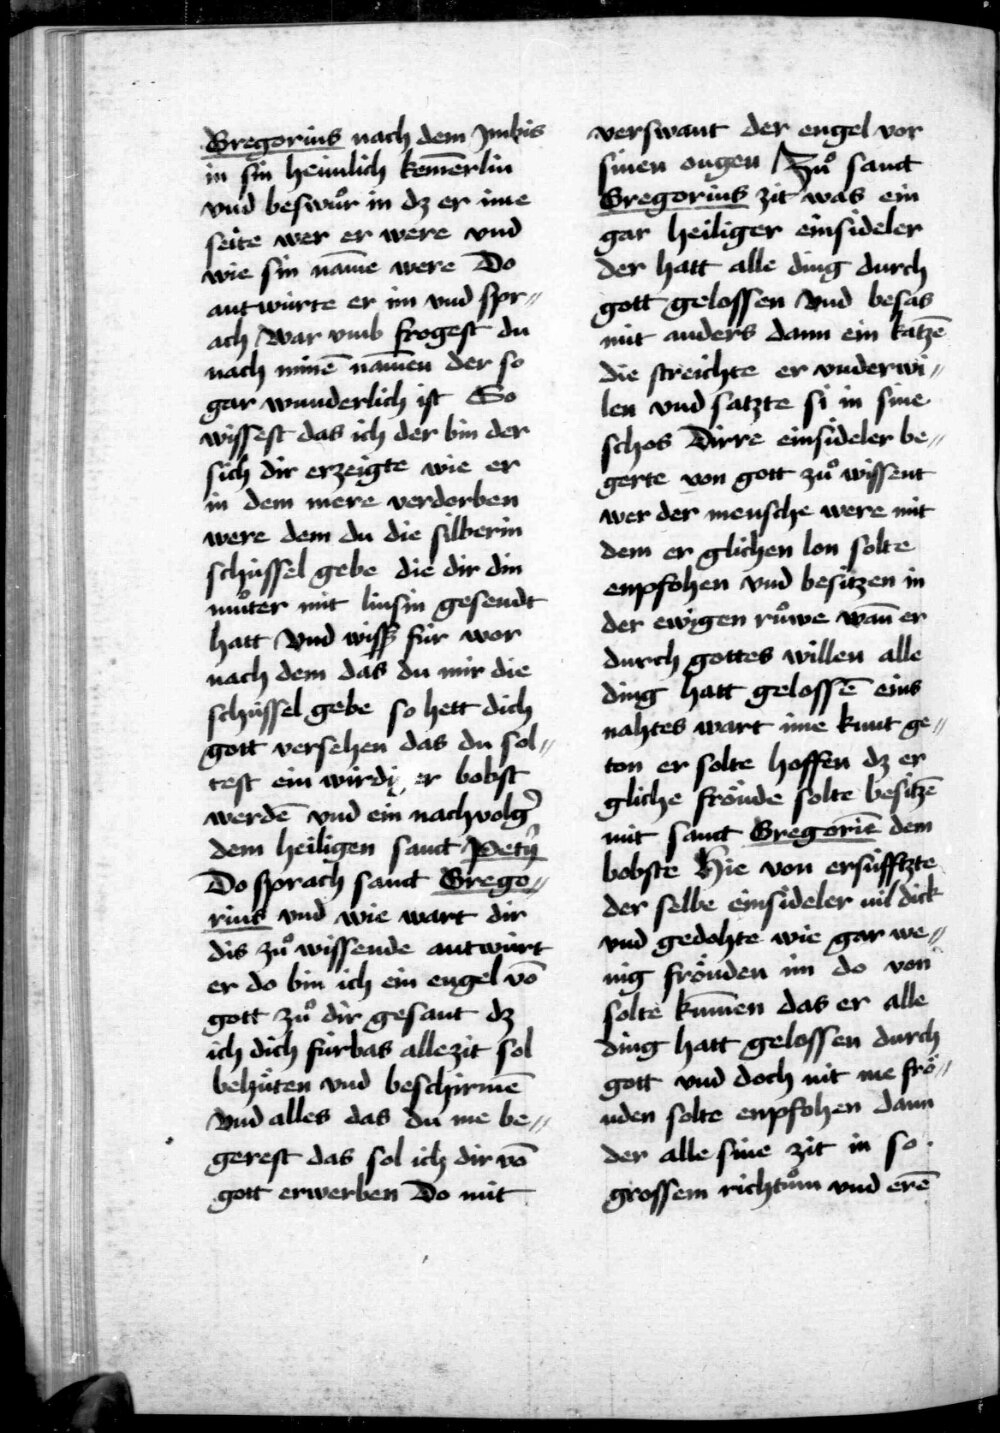 Gregorius nach dem Jmbis
in sin heimlich kem̄erlin
vnd beswuͦr in dz er ime
seite wer er were vnd
wie sin nam̄e were Do
antwùrte er im vnd spr⸗
ach War vmb frogest du
nach minē nam̄en der so
gar wunderlich ist So
wissest das ich der bin der
sich dir erzeigte wie er
in dem mere verdorben
were dem du die silberin
schùssel gebe die dir din
muͦter mit linsin gesendt
hatt Vnd wiss fùr wor
nach dem das du mir die
schùssel gebe so hett dich
gott versehen das du sol⸗
test ein wirdiger bobst
werdē vnd ein nachvolg̉
dem heiligen sanct Petri
Do sprach sanct Grego⸗
rius vnd wie wart dir
dis zuͦ wissende antwùrt
er do bin ich ein engel vō
gott zuͦ dir gesant dz
ich dich fùrbas allezit sol
behùten vnd beschirmē
Vnd alles das du me be⸗
gerest das sol ich dir vō
gott erwerben Do mit
verswant der engel vor
sinen ougen Zuͦ sanct
Gregorius zit was ein
gar heiliger einsideler
der hatt alle ding durch
gott gelossen Vnd besas
nit anders dann ein katzē
die streichte er vnderwi⸗
len vnd satzte si in sine
schos Dirre einsideler be⸗
gerte von gott zuͦ wissent
wer der mensche were mit
dem er glichen lon solte
enpfohen vnd besitzen in
der ewigen ruͦwe wan̄ er
durch gottes willen alle
ding hatt gelossē eins
nahtes wart ime kunt ge⸗
ton er solte hoffen dz er
gliche fröude solte besitzē
mit sanct Gregoriē dem
bobste Hie von ersùfftzte
der selbe einsideler vil dick
vnd gedohte wie gar we⸗
nig fröuden im do von
solte kum̄en das er alle
ding hatt gelossen durch
gott vnd doch nit me frö⸗
uden solte enpfohen dann
der alle sine zit in so
grossem richtuͦm vnd erē